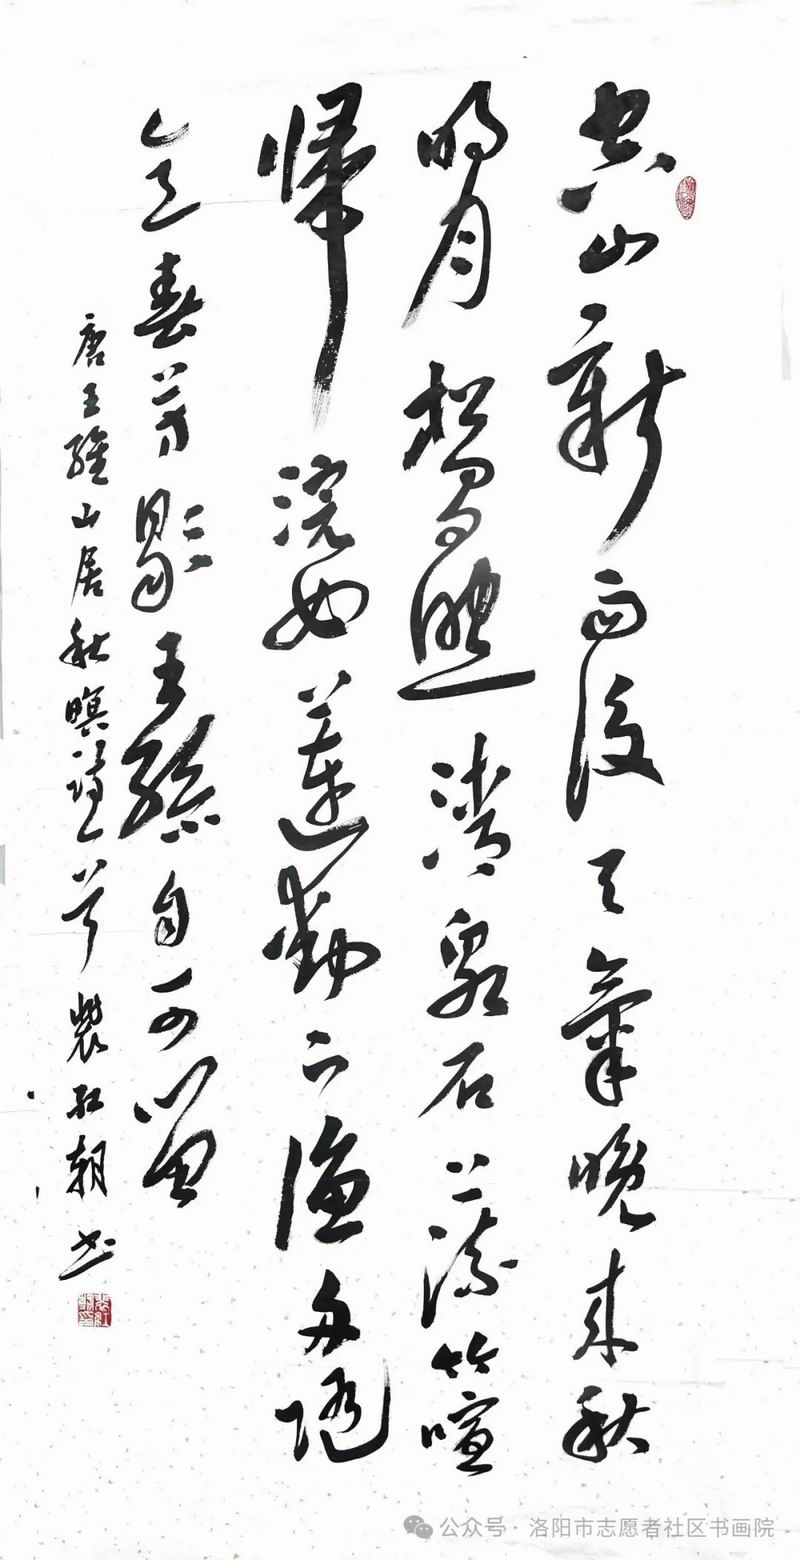 空山新雨後天氣晚来秋
明月松間照清泉石上流竹喧
歸浣女蓮動下漁舟隨
意春芳歇王孫自可留
唐王維山居秋暝詩一首 裴红朝书
公众号 · 洛阳市志愿者社区书画院